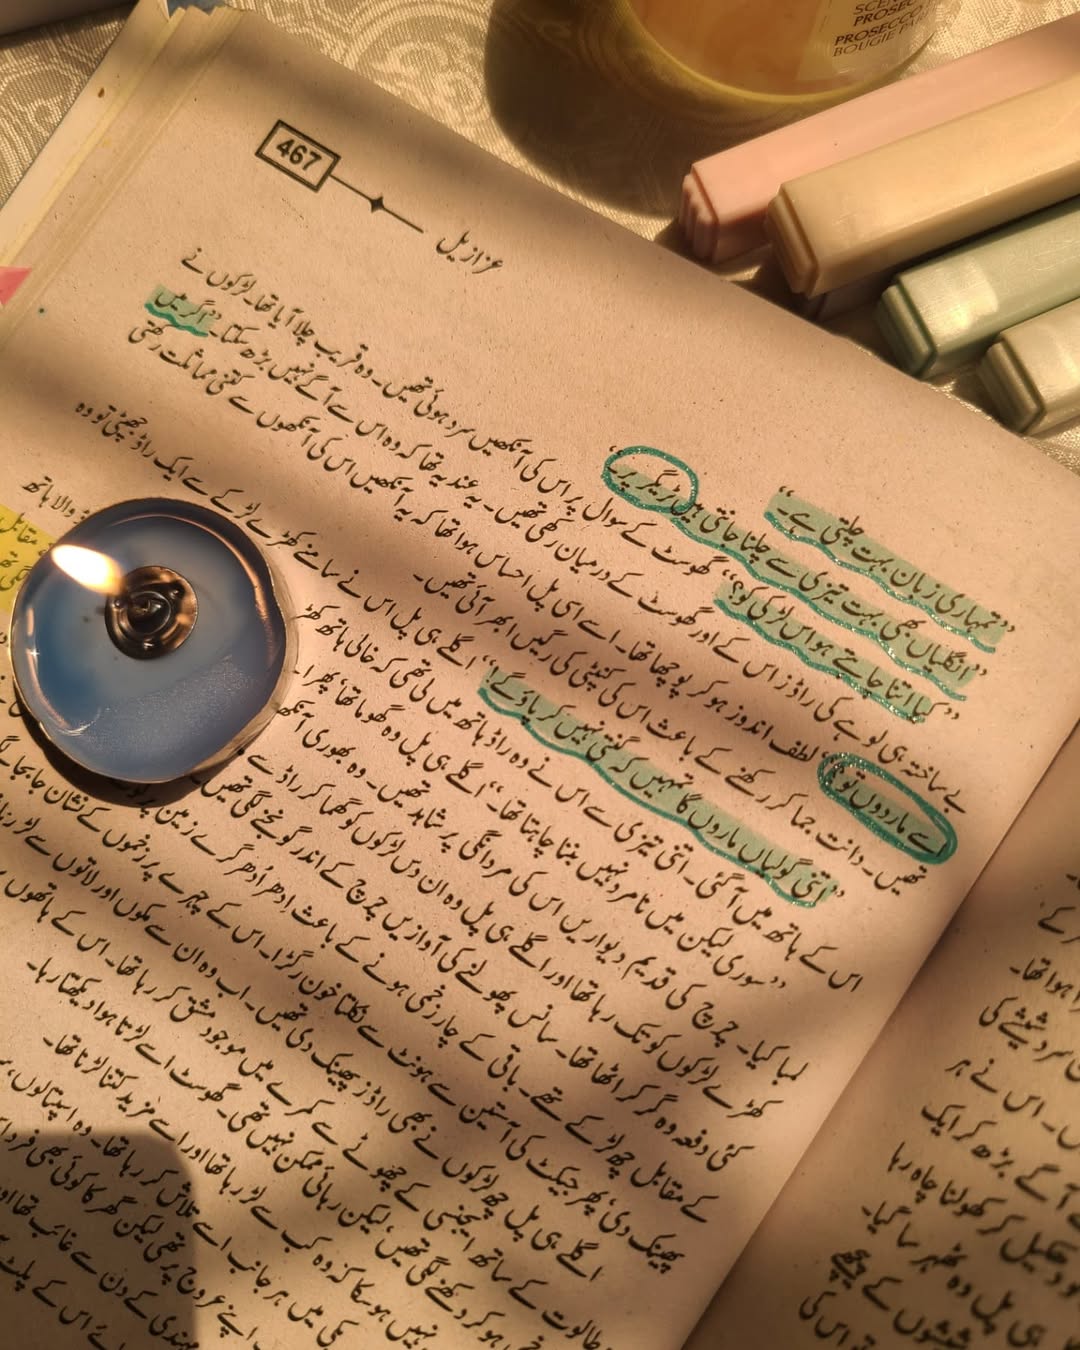 467
عزازیل
"تمہاری زبان بہت چلتی ہے۔"
"انگلیاں بھی بہت تیزی سے چلنا جانتی ہیں ٹریگر پر۔"
"کیا اتنا چاہتے ہو اس لڑکی کو؟" گھوسٹ کے سوال پر اس کی آنکھیں سرد ہوئی تھیں۔ وہ قریب چلا آیا تھا۔ لڑکوں نے
بے ساختہ ہی لوہے کی راڈز اس کے اور گھوسٹ کے درمیان رکھی تھیں۔ یہ عندیہ تھا کہ وہ اس سے آگے نہیں بڑھ سکتا۔ "اگر میں
اسے مار دوں تو؟" لطف اندوز ہو کر پوچھا تھا۔ اسے اسی پل احساس ہوا تھا کہ یہ آنکھیں اس کی آنکھوں سے کتنی مماثلت رکھتی
تھیں۔ دانت جما کر رکھنے کے باعث اس کی کنپٹی کی رگیں ابھر آئی تھیں۔
"اتنی گولیاں ماروں گا تمہیں کہ گنتی نہیں کر پاؤ گے!" اگلے ہی پل اس نے سامنے کھڑے لڑکے سے ایک راڈ جھپٹی تو وہ
اس کے ہاتھ میں آ گئی۔ اتنی تیزی سے اس نے وہ راڈ ہاتھ میں لی تھی کہ خالی ہاتھ والا ہاتھ
"سوری لیکن میں نامرد نہیں بننا چاہتا تھا۔" اگلے ہی پل وہ گھوما تھا، پھر مقابل
لمبا کیا۔ چرچ کی قدیم دیواریں اس کی مردانگی پر شاہد تھیں۔ وہ بھوری آنکھ
کھڑے لڑکوں کو تک رہا تھا اور اگلے ہی پل وہ ان دس لڑکوں کو گھما کر راڈ سے
کئی دفعہ وہ گر کر اٹھا تھا۔ سانس پھولنے کی آوازیں چرچ کے اندر گونجنے لگی تھیں
کے مقابل چھ لڑکے تھے۔ باقی کے چار زخمی ہونے کے باعث اِدھر اُدھر گرے زمین پر
پھینک دی، پھر جیکٹ کی آستین سے ہونٹ سے نکلتا خون رگڑا۔ اس کے چہرے پر زخموں کے نشان جا بجا
اگلے ہی پل چھ لڑکوں نے بھی راڈز پھینک دی تھیں۔ اب وہ ان سے مکوں اور لاتوں سے لڑ رہا
طالوت کے ساتھ ایجنسی کے چھوٹے سے کمرے میں موجود مشق کر رہا تھا۔ اس کے ہاتھوں
ہو کر دکھنے لگی تھیں، لیکن رہائی ممکن نہیں تھی۔ گھوسٹ اسے لڑتا ہوا دیکھتا رہا۔
نہیں ہو سکا کہ وہ کب سے لڑ رہا تھا اور اسے مزید کتنا لڑنا تھا۔
میں ہر جانب اسے تلاش کر رہا تھا۔ وہ اسپتالوں،
اپنے عروج پر تھی لیکن گھر کا کوئی بھی فرد
مہندی کے دن سے غائب تھا اور
اس کے پلٹ
ہوا تھا۔
شیشے کی
اس نے ہر
آگے بڑھ کر ایک
دھکیل کر کھولنا چاہ رہا
ہی پل وہ ٹھہر سا گیا۔
شیشوں کے پیچھے
تو اس کی
PROSECCO
BOUGIE